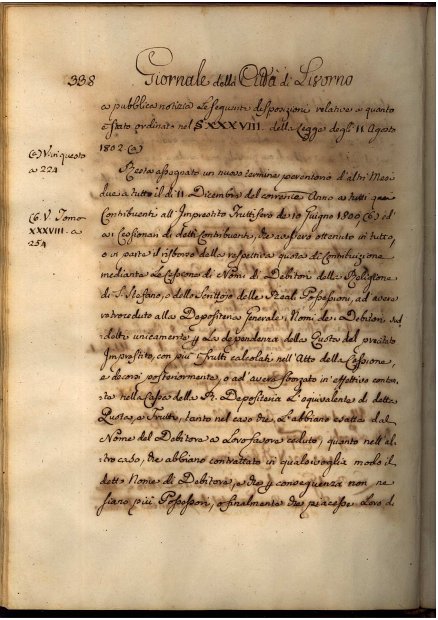 338 Giornale della Città di Livorno
a pubblica notizia le seguenti disposizioni relative a quanto
è stato ordinato nel § XXXVIII. della Legge degli 11 Agosto
1802. (a)
(a) V. in questo
a 224
Resta assegnato un nuovo termine perentorio d'altri Mesi
due a tutto il dì 11 Dicembre del corrente Anno a tutti quei
Contribuenti all'Imprestito Fruttifero de 10 Giugno 1800, (b) ed
(b) V. Tomo
XXXVIII. a
254
ai Cessionari di detti Contribuenti, che avessero ottenuto in tutto,
o in parte il rimborso della respettiva quota di Contribuzione
mediante la Cessione di Nomi di Debitori della Religione
di S. Stefano, o dello Scrittojo delle Reali Possessioni, ad avere
retroceduto alla Depositeria Generale i Nomi de Debitori sud
detti unicamente la dependenza della Quota del precitato
Imprestito, con più i Frutti calcolati nell'Atto della Cessione,
e decorsi posteriormente, o ad avere sborzato in effettivo contan
te nella Cassa della R. Depositeria l'equivalente di detta
Quota, e Frutti, tanto nel caso che l'abbiano esatta dal
Nome del Debitore a loro favore ceduto, quanto nell'al
tro caso, che abbiano contrattato in qualsivoglia modo il
detto Nome di Debitore, e che conseguenza non ne
siano più Possessori, o finalmente che piacesse loro di